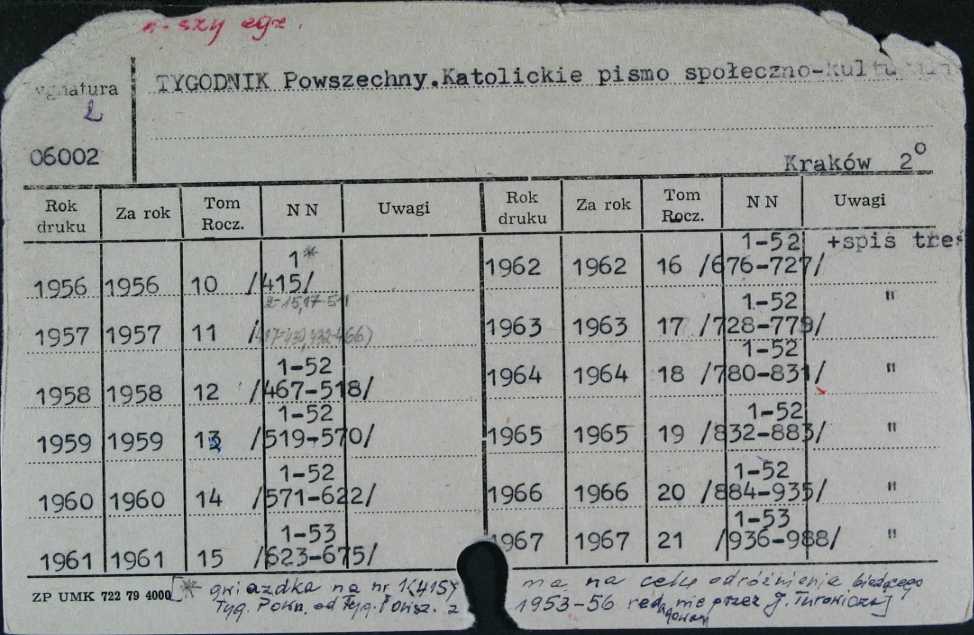 n-szy egz.
TYGODNIK Powszechny.Katolickie pismo społeczno-kultu
ygnatura
2
06002
Kraków 2°
Rok druku Za rok Tom Rocz. NN Uwagi Rok druku Za rok Tom Rocz. NN Uwagi
1956 1956 10 1* /415/ 1962 1962 16 1-52 /676-727/ +spis treś
1957 1957 11 2-15,17-51 / 1963 1963 17 1-52 /728-779/ "
1958 1958 12 1-52 /467-518/ 1964 1964 18 1-52 /780-831/ "
1959 1959 13 1-52 /519-570/ 1965 1965 19 1-52 /832-883/ "
1960 1960 14 1-52 /571-622/ 1966 1966 20 1-52 /884-935/ "
1961 1961 15 1-53 /623-675/ 1967 1967 21 1-53 /936-988/ "
ZP UMK 722 79 4000 [* gwiazdka na nr 1(415) ma na celu odróżnienia bieżącego
Tyg. Pow. od Tyg. Powsz. z 1953-56 redagowan nie przez J. Turowicza]